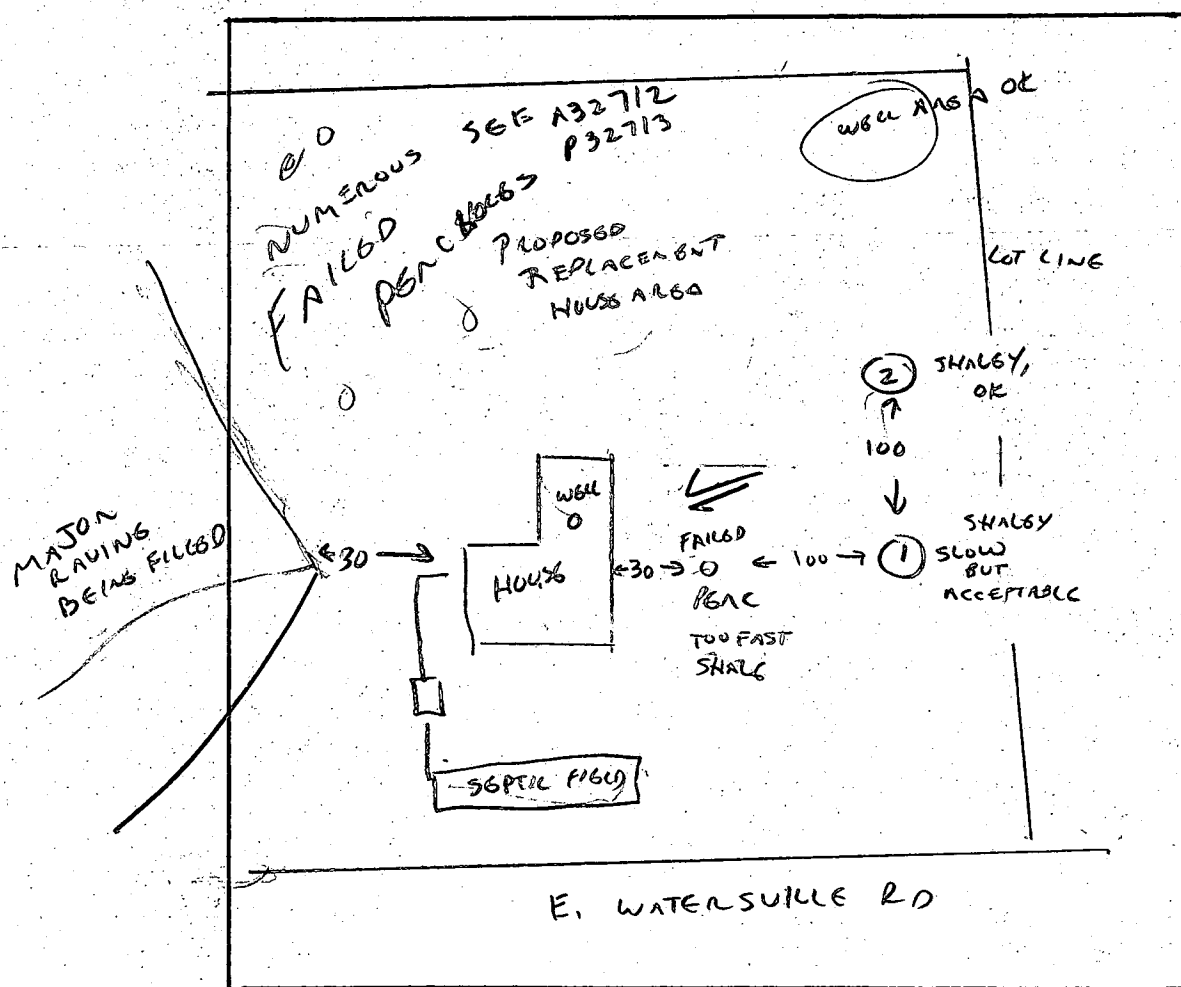 SEE A32712
P32713
NUMEROUS
FAILED
PERC HOLES
PROPOSED
REPLACEMENT
HOUSE AREA
WELL AREA OK
LOT LINE
2
SHALEY,
OK
100
MAJOR
RAVINE
BEING FILLED
30
WELL
HOUSE
30
FAILED
PERC
TOO FAST
SHALE
100
1
SHALEY
SLOW
BUT
ACCEPTABLE
SEPTIC FIELD
E. WATERSVILLE RD